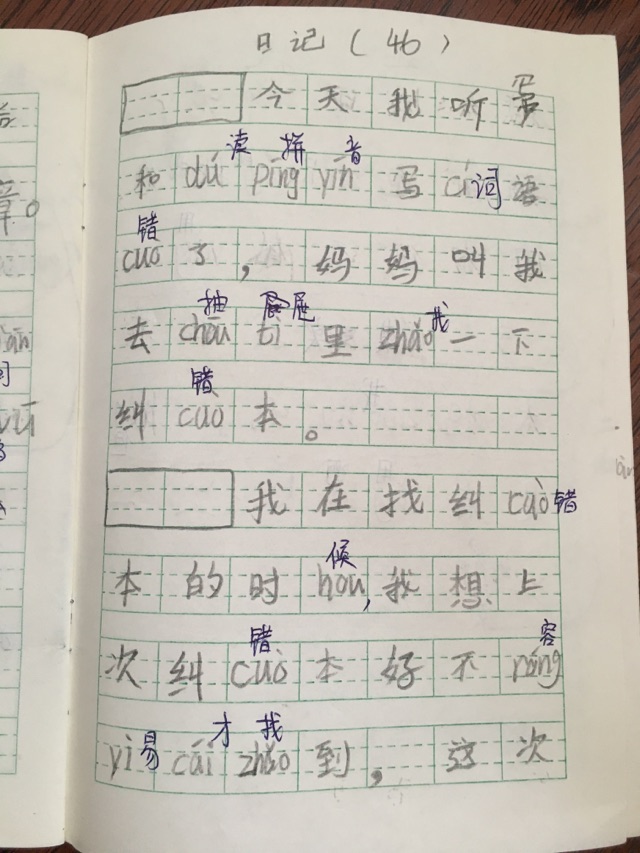 日记（46）
今天我听写
和dú pīng yīn写cí词语
读拼音
cuò了，妈妈叫我
错
去chōu tì里zhǎo一下
抽屉找
纠cuò本。
错
我在找纠cuò错
本的时hou，我想上
候
次纠cuò本好不róng
错容
yì易cái zhǎo到，这次
才找